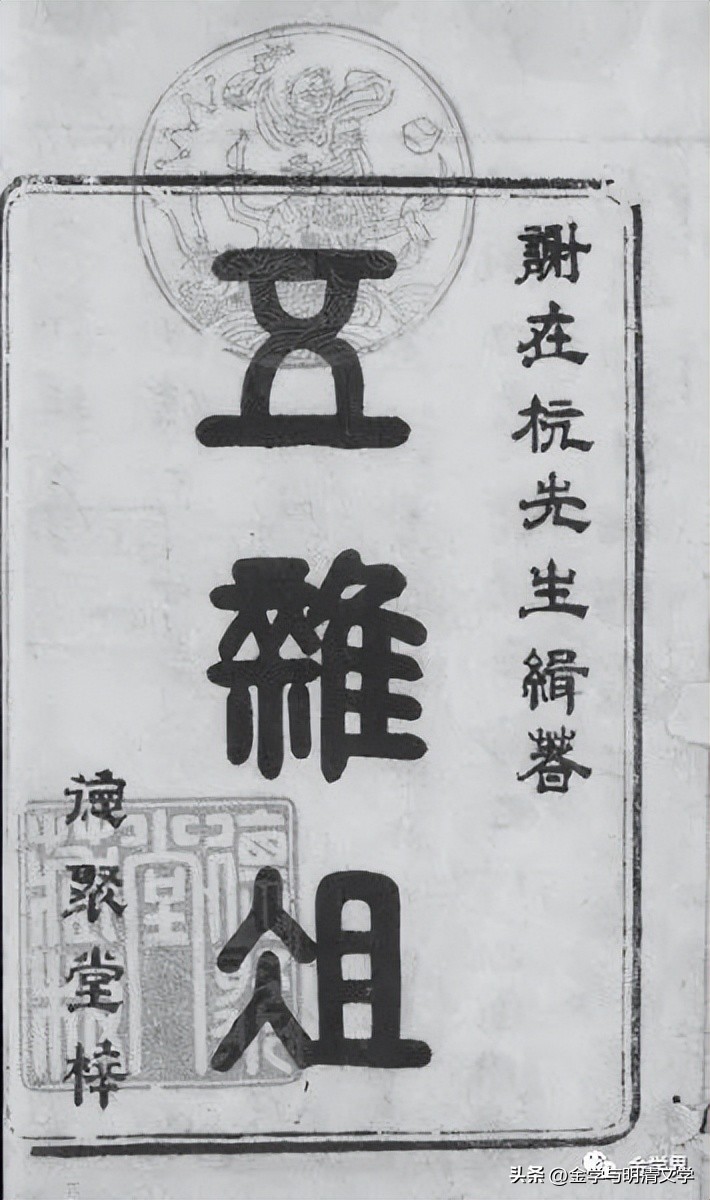 謝在杭先生緝著
五雜俎
德聚堂梓
头条 @金学与明清文学